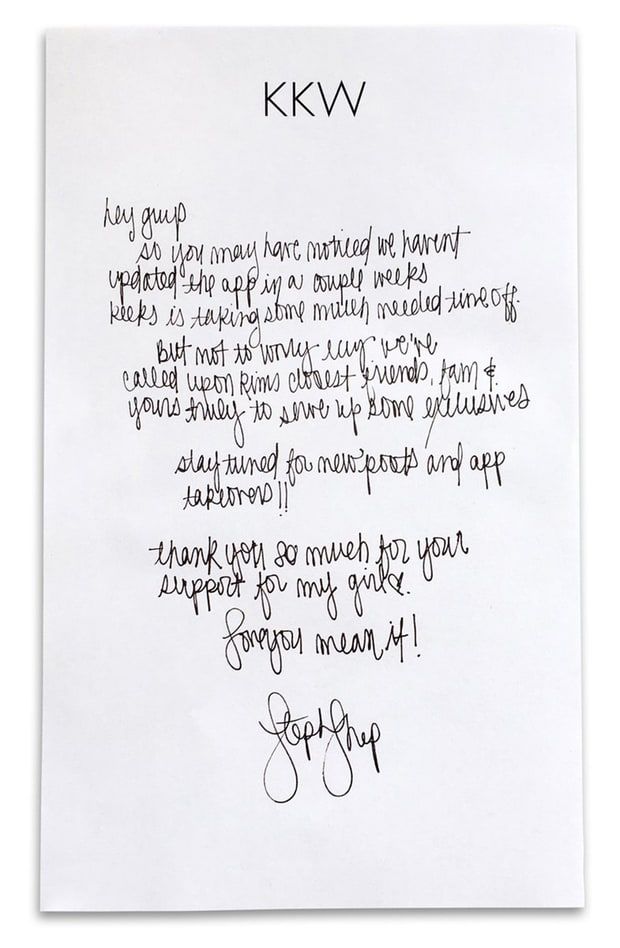 KKW
hey guys
so you may have noticed we havent
updated the app in a couple weeks
keeks is taking some much needed time off.
But not to worry cuz we've
called upon kims closest friends, fam &
yours truly to serve up some exclusives
stay tuned for new posts and app
takeovers!!
thank you so much for your
support for my girl♡.
loveyou mean it!
Steph Shep